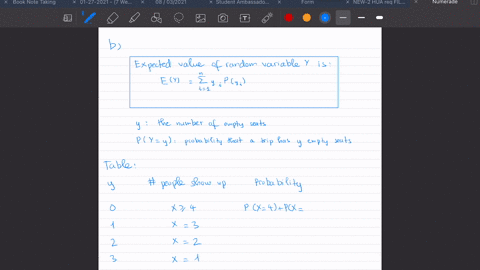 Book Note Taking
01-27-2021 - (7 We...
08 / 03/2021
Student Ambassado...
Form
NEW-2 HUA req FS...
Numerade
b)
Expected value of random variable Y is:
E(Y) = n∑i=1 yi P(yi)
y : the number of empty seats
P(Y=y): probability that a trip has y empty seats
Table:
y # people show up Probability
0 X ≥ 4 P(X=4)+P(X=
1 X = 3
2 X = 2
3 X = 1